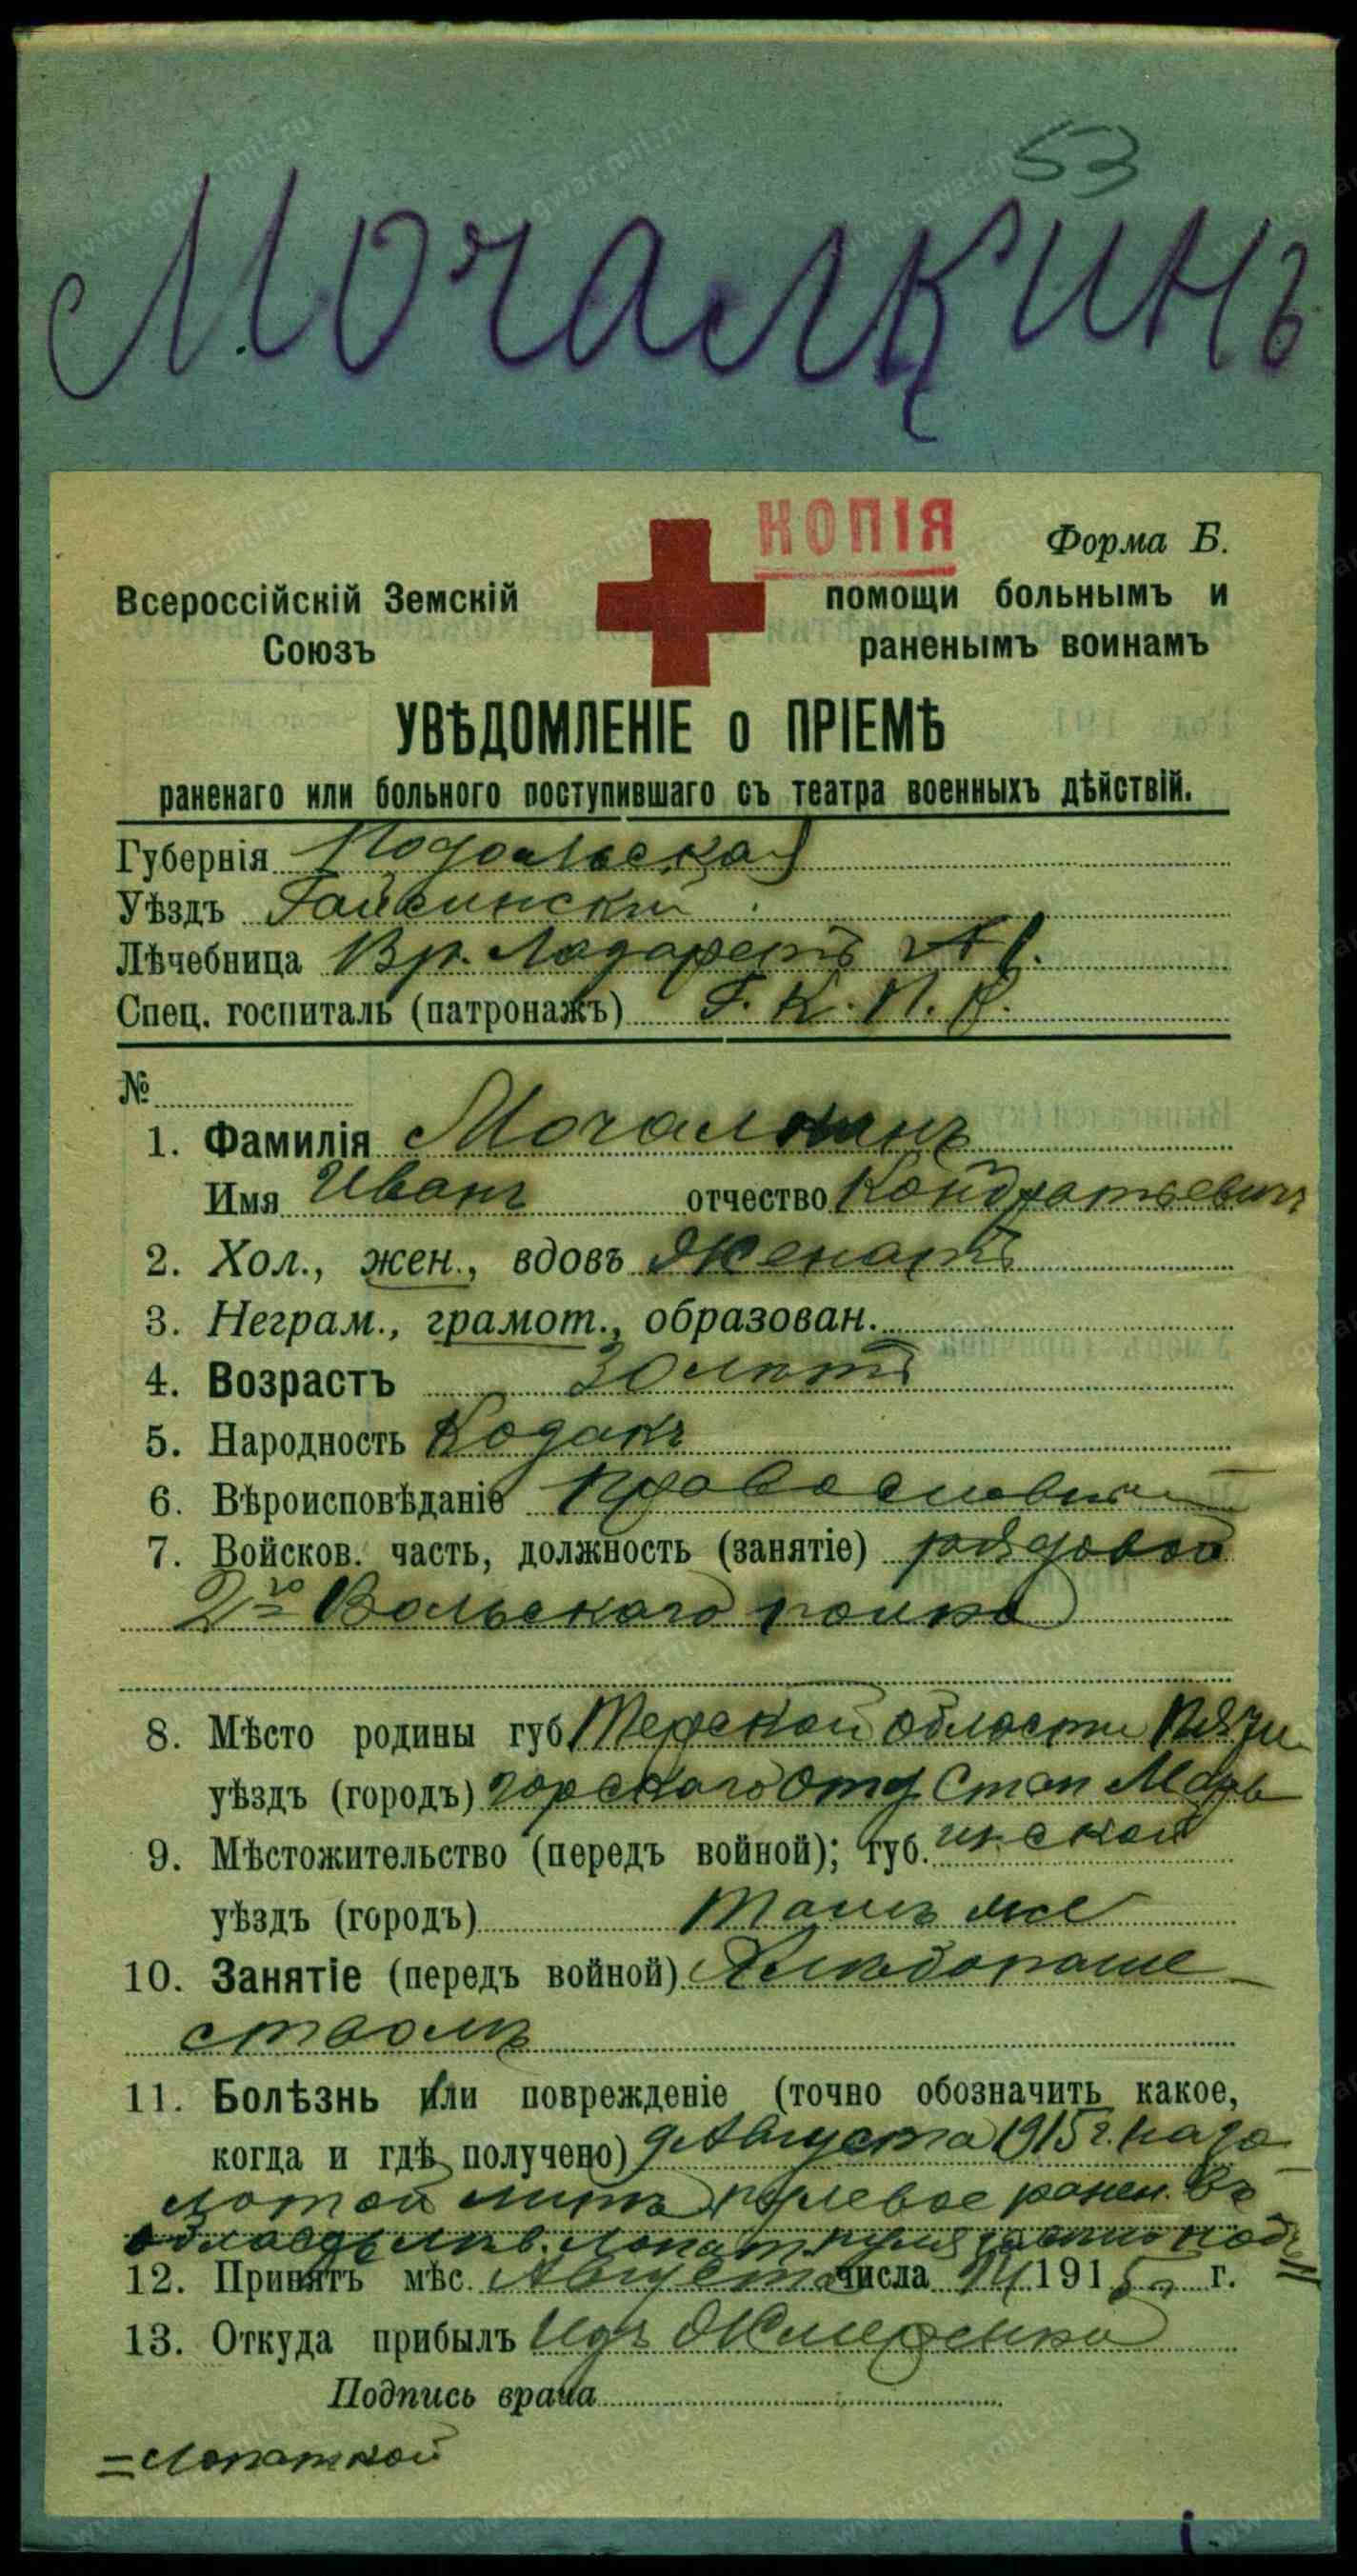 53
Мочалкинъ
КОПІЯ
Форма Б.
Всероссійскій Земскій Союзъ
помощи больнымъ и раненымъ воинамъ
УВѢДОМЛЕНІЕ о ПРІЕМѢ
раненаго или больного поступившаго съ театра военныхъ дѣйствій.
Губернія Подольская
Уѣздъ Гайсинскій
Лѣчебница Вр. Лазаретъ №1.
Спец. госпиталь (патронажъ) Г. К. П. К.
№
1. Фамилія Мочалкинъ
Имя Иванъ отчество Кондратьевичъ
2. Хол., жен., вдовъ Женатъ
3. Неграм., грамот., образован.
4. Возрастъ 30 лѣтъ
5. Народность Козакъ
6. Вѣроисповѣданіе Православный
7. Войсков. часть, должность (занятіе) рядовой
2го Вольскаго полка
8. Мѣсто родины губ. Терской области Пяти
уѣздъ (городъ) горскаго Отд. Стан Марь
9. Мѣстожительство (передъ войной); губ. инской
уѣздъ (городъ) тамъ же
10. Занятіе (передъ войной) Хлѣбопаше
ствомъ
11. Болѣзнь или поврежденіе (точно обозначить какое,
когда и гдѣ получено) 9 Августа 1915 г. на зо
лотой липѣ пулевое ранен. въ
область лѣв. лопат. пуля подъ
12. Принятъ мѣс. Августа числа 14 1915 г.
13. Откуда прибылъ Изъ Жмеренки
Подпись врача
=Лопаткой